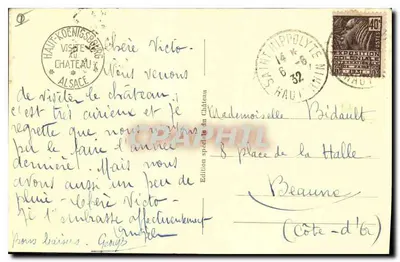 HAUT-KOENIGSBOURG
VISITE
DU
CHATEAU
ALSACE
Chère Victo-
Nous venons
de visiter le château,
c'est très curieux et je
regrette que nous n'ayons
pu le faire l'année
dernière. Mais nous
avons aussi un peu de
pluie - Chère Victo-
Je t'embrasse affectueusement
bons baisers.
Edition spéciale du Château
SAINT HIPPOLYTE
HAUT
14
6
32
40
Mademoiselle Bidault
8 place de la Halle
Beaune
(Côte-d'Or)
CPARAMA